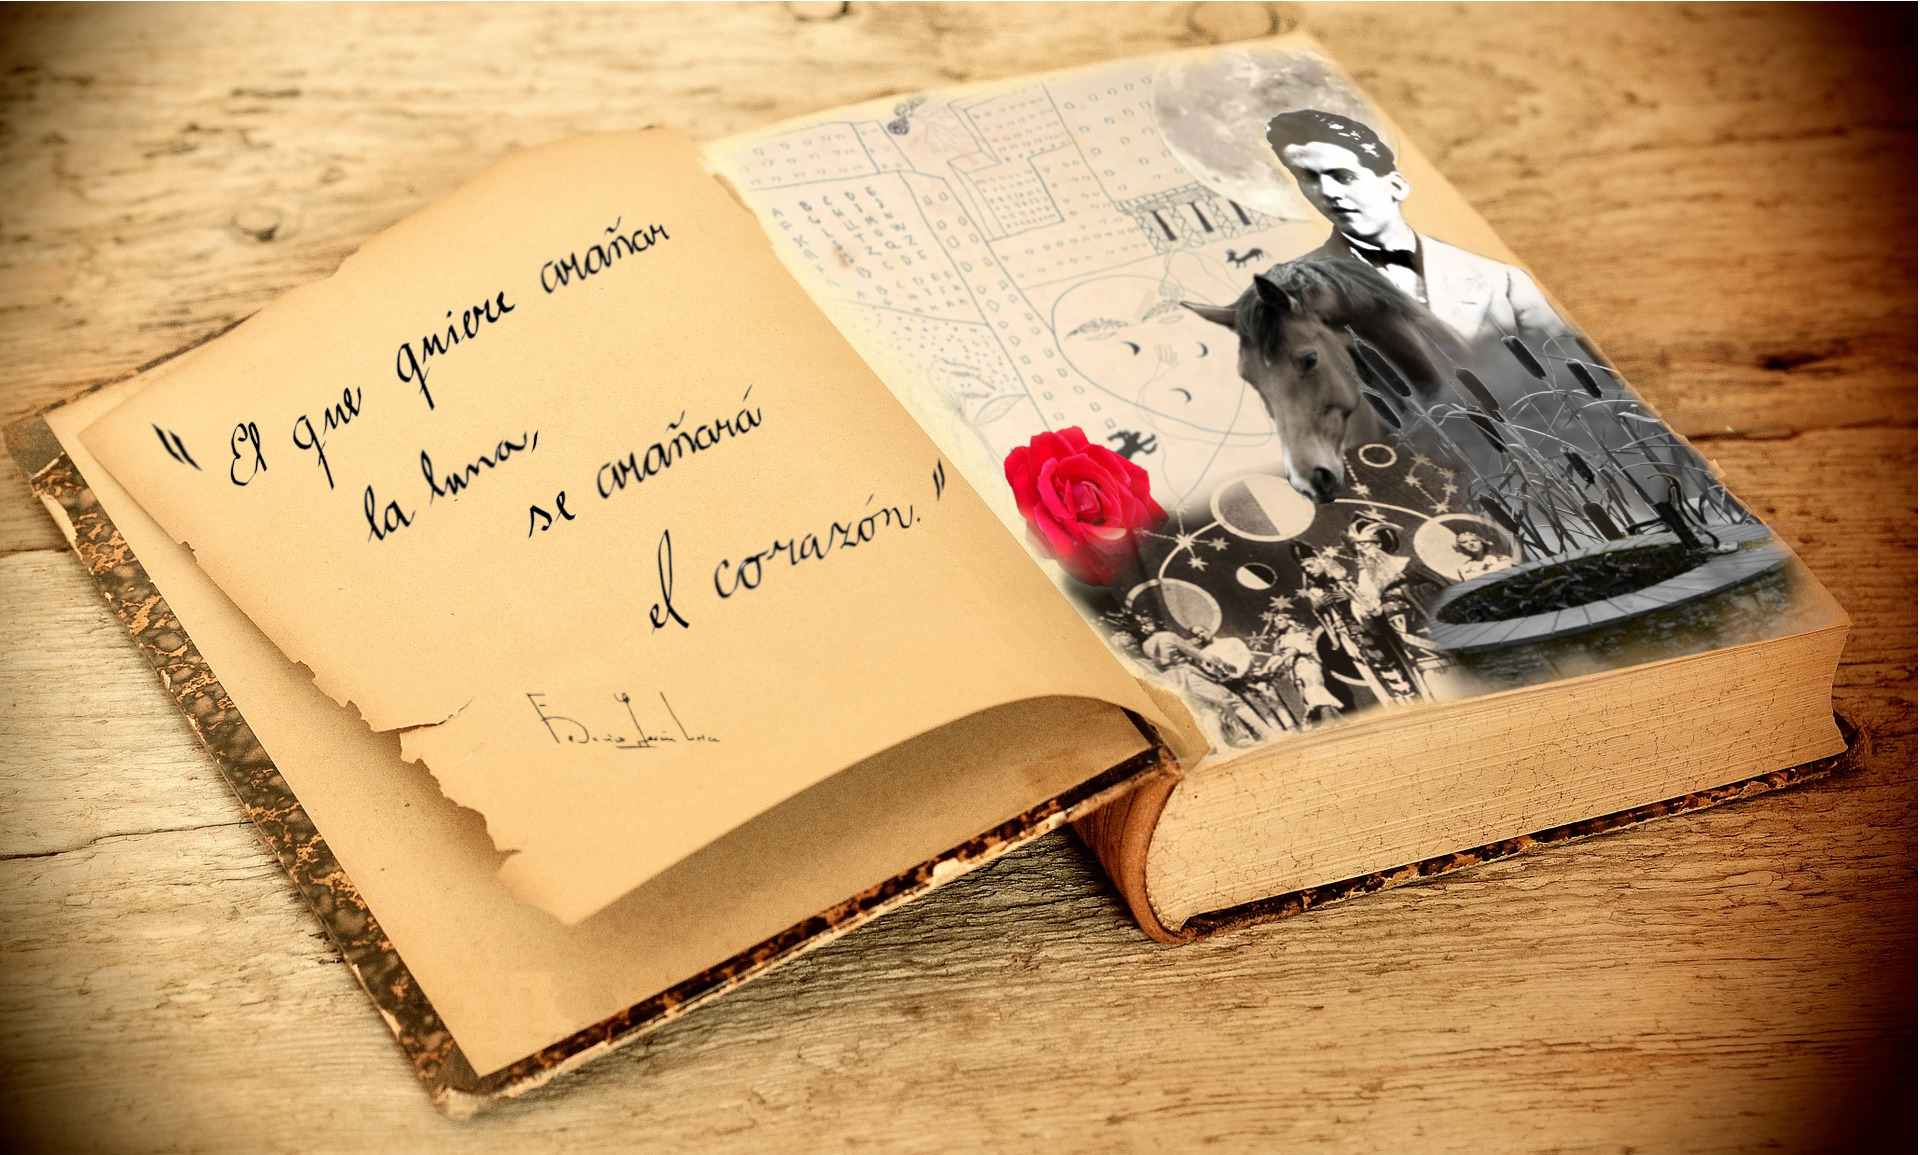 " El que quiere arañar
la luna,
se arañará
el corazón. "
Federico García Lorca